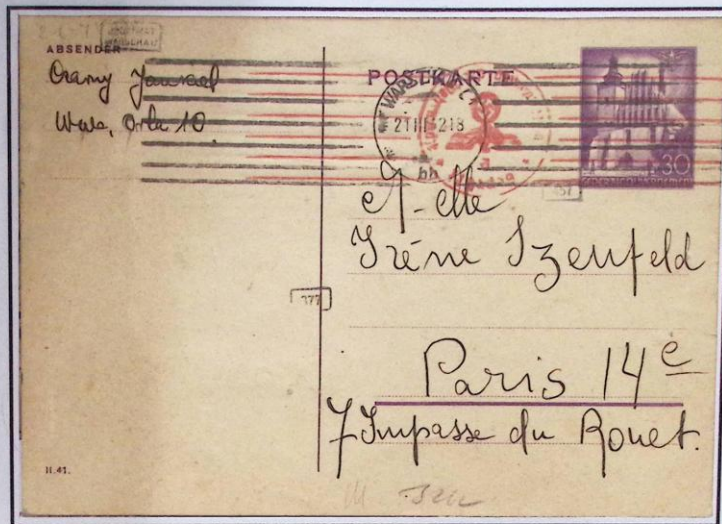 ABSENDER
Czarny Jankiel
Wwa, Orla 10
POSTKARTE
WARSCHAU C1
30
GENERALGOUVERNEMENT
M-elle
Irène Szenfeld
377
Paris 14e
7 Impasse du Rouet.
II.41.